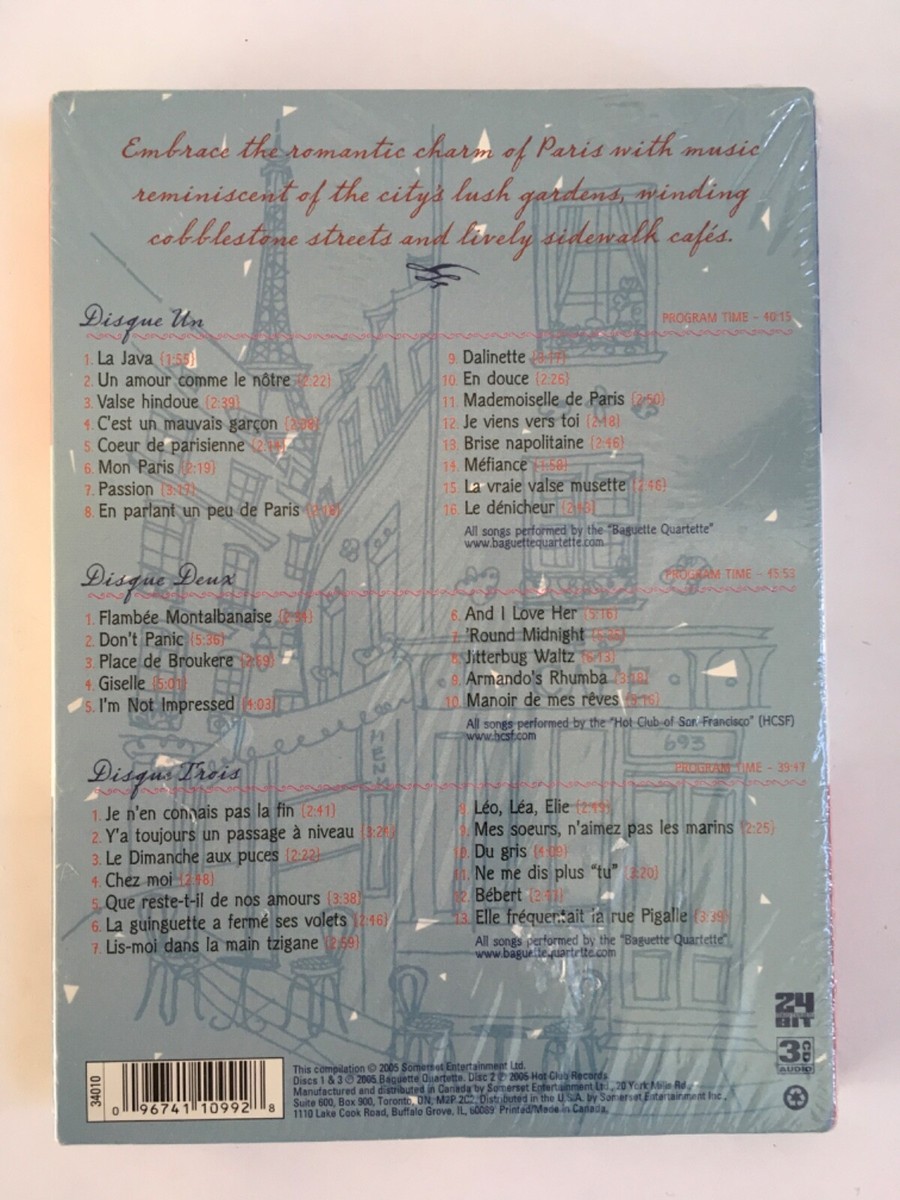 Embrace the romantic charm of Paris with music
reminiscent of the city's lush gardens, winding
cobblestone streets and lively sidewalk cafés.
Disque Un
PROGRAM TIME - 40:15
1. La Java (1:55)
2. Un amour comme le nôtre (2:22)
3. Valse hindoue (2:39)
4. C'est un mauvais garçon
5. Coeur de parisienne
6. Mon Paris (2:19)
7. Passion (3:17)
8. En parlant un peu de Paris
9. Dalinette (3:17)
10. En douce (2:26)
11. Mademoiselle de Paris (2:50)
12. Je viens vers toi (2:18)
13. Brise napolitaine (2:46)
14. Méfiance (1:58)
15. La vraie valse musette (2:46)
16. Le dénicheur
All songs performed by the "Baguette Quartette"
www.baguettequartette.com
Disque Deux
PROGRAM TIME - 45:53
1. Flambée Montalbanaise
2. Don't Panic (5:36)
3. Place de Broukere
4. Giselle (5:01)
5. I'm Not Impressed (4:03)
6. And I Love Her (5:16)
7. 'Round Midnight
8. Jitterbug Waltz (6:13)
9. Armando's Rhumba (3:18)
10. Manoir de mes rêves (5:16)
All songs performed by the "Hot Club of San Francisco" (HCSF)
www.hcsf.com
Disque Trois
PROGRAM TIME - 39:47
1. Je n'en connais pas la fin (2:41)
2. Y'a toujours un passage à niveau
3. Le Dimanche aux puces (2:22)
4. Chez moi (2:48)
5. Que reste-t-il de nos amours (3:38)
6. La guinguette a fermé ses volets (2:46)
7. Lis-moi dans la main tzigane (2:59)
8. Léo, Léa, Elie
9. Mes soeurs, n'aimez pas les marins (2:25)
10. Du gris (4:09)
11. Ne me dis plus "tu" (3:20)
12. Bébert
13. Elle fréquentait la rue Pigalle (3:39)
All songs performed by the "Baguette Quartette"
www.baguettequartette.com
MENU
693
24
BIT
3 CD
AUDIO
34010
0 96741 10992 8
This compilation © 2005 Somerset Entertainment Ltd.
Discs 1 & 3 ℗ 2005 Baguette Quartette. Disc 2 ℗ 2005 Hot Club Records
Manufactured and distributed in Canada by Somerset Entertainment Ltd., 20 York Mills Rd.,
Suite 600, Box 900, Toronto, ON, M2P 2C2. Distributed in the U.S.A. by Somerset Entertainment Inc.,
1110 Lake Cook Road, Buffalo Grove, IL, 60089. Printed/Made in Canada.